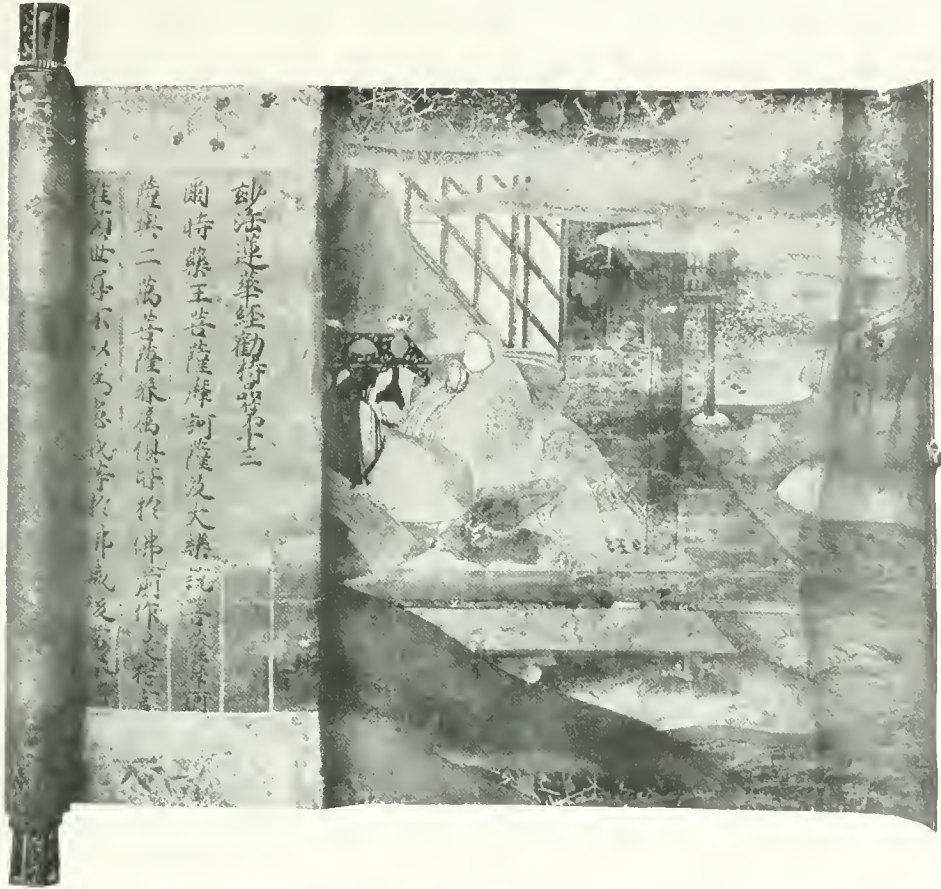 妙法蓮華經勸持品第十二
爾時藥王菩薩摩訶薩及大樂說菩薩摩訶
薩與二萬菩薩眷屬俱皆於佛前作是誓言
唯願世尊不以為慮我等於佛滅後當